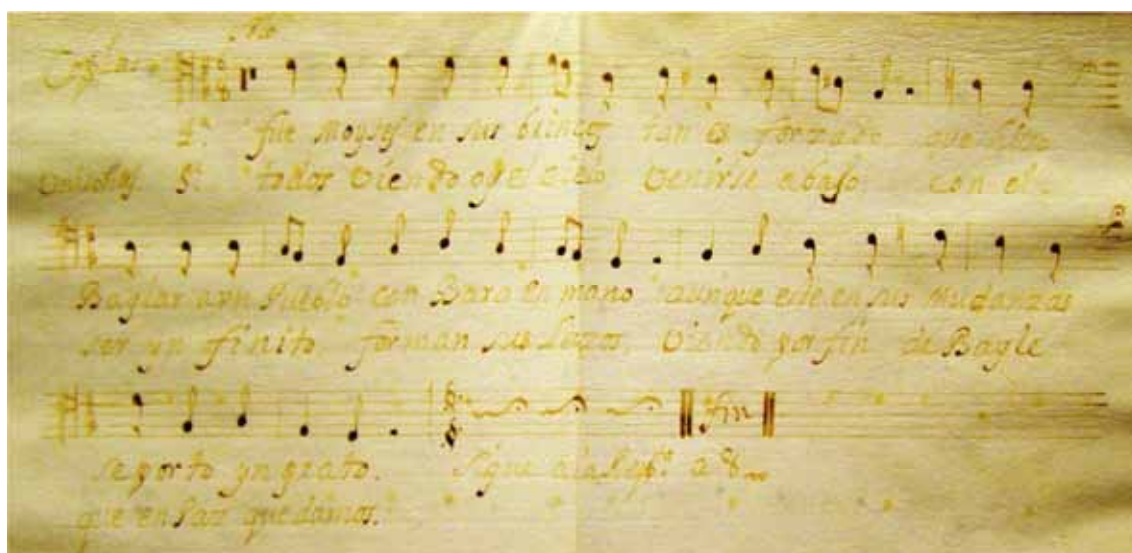 Solo
4ª. fue Moyses en sus brincos tan es forzado que hizo
Unisones. 5ª. todos viendo q̃ el cielo venirse abaſo con el
Baylar a un Pueblo con Bara en mano aunque este en sus mudanzas
ser ynfinito forman sus lazos, viendo por fin de Bayle
se porto yngrato. Sigue a la Respta. a 8
fin
que en Paz quedamos.